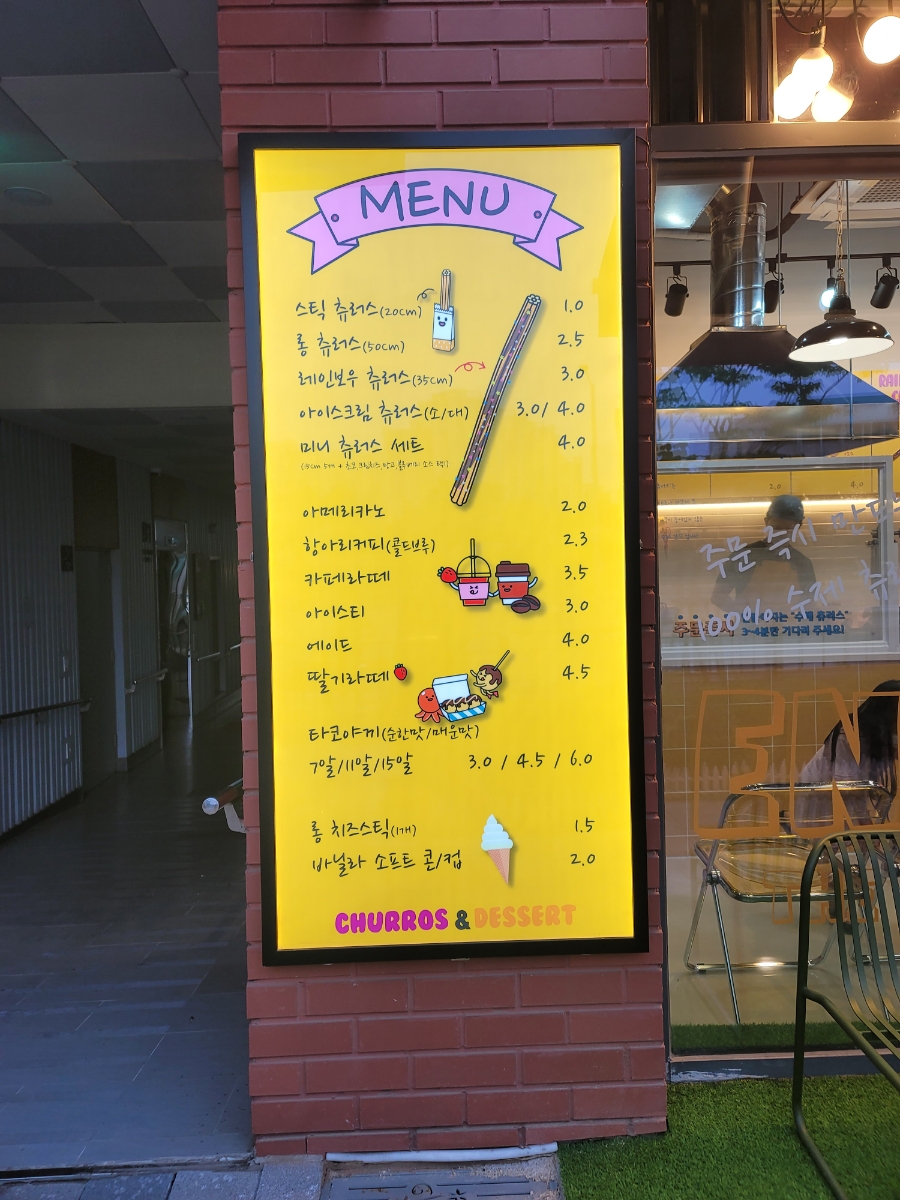 MENU
스틱 츄러스(20cm) 1.0
롱 츄러스(50cm) 2.5
레인보우 츄러스(35cm) 3.0
아이스크림 츄러스(소/대) 3.0/ 4.0
미니 츄러스 세트 4.0
아메리카노 2.0
항아리커피(콜드브루) 2.3
카페라떼 3.5
아이스티 3.0
에이드 4.0
딸기라떼 4.5
타코야끼(순한맛/매운맛)
7알/11알/15알 3.0 / 4.5 / 6.0
롱 치즈스틱(1개) 1.5
바닐라 소프트 콘/컵 2.0
CHURROS & DESSERT
주문 즉시
100% 수제
3~4분만 기다려 주세요!